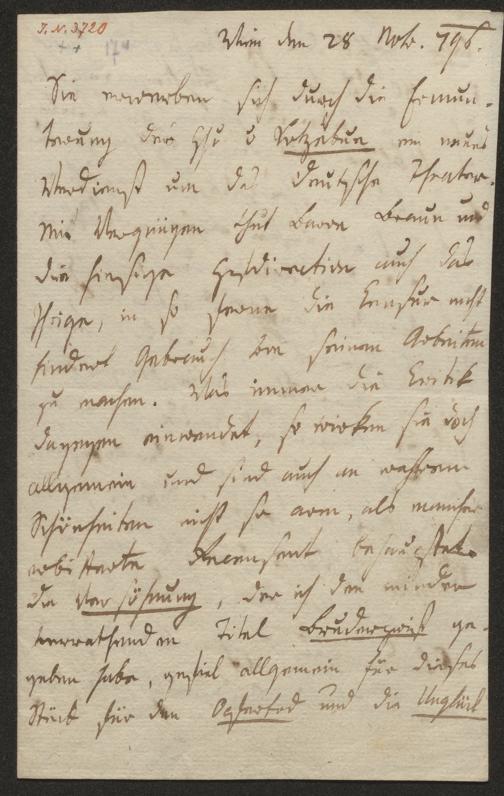 J. N. 3720
Wien den 28 Novbr. 796.
Sie erwerben sich durch die Ermun-
terung des H v Kotzebue ein neues
Verdienst um das deutsche Theater.
Mit Vergnügen thut Baron Braun und
die hiesige Hofdirection auch das
Ihrige, in so ferne die Censur nicht
hindert Gebrauch von seinen Arbeiten
zu machen. Was immer die Critik
dagegen einwendet, so wirken sie doch
allgemein und sind auch an wahren
Schönheiten nicht so arm, als mancher
erbitterte Recensent behauptet.
Die Versöhnung, der ich den minder
verrathenden Titel Bruderzwist ge-
geben habe, gefiel allgemein für dieses
Stück für den Opfertod und die Unglück